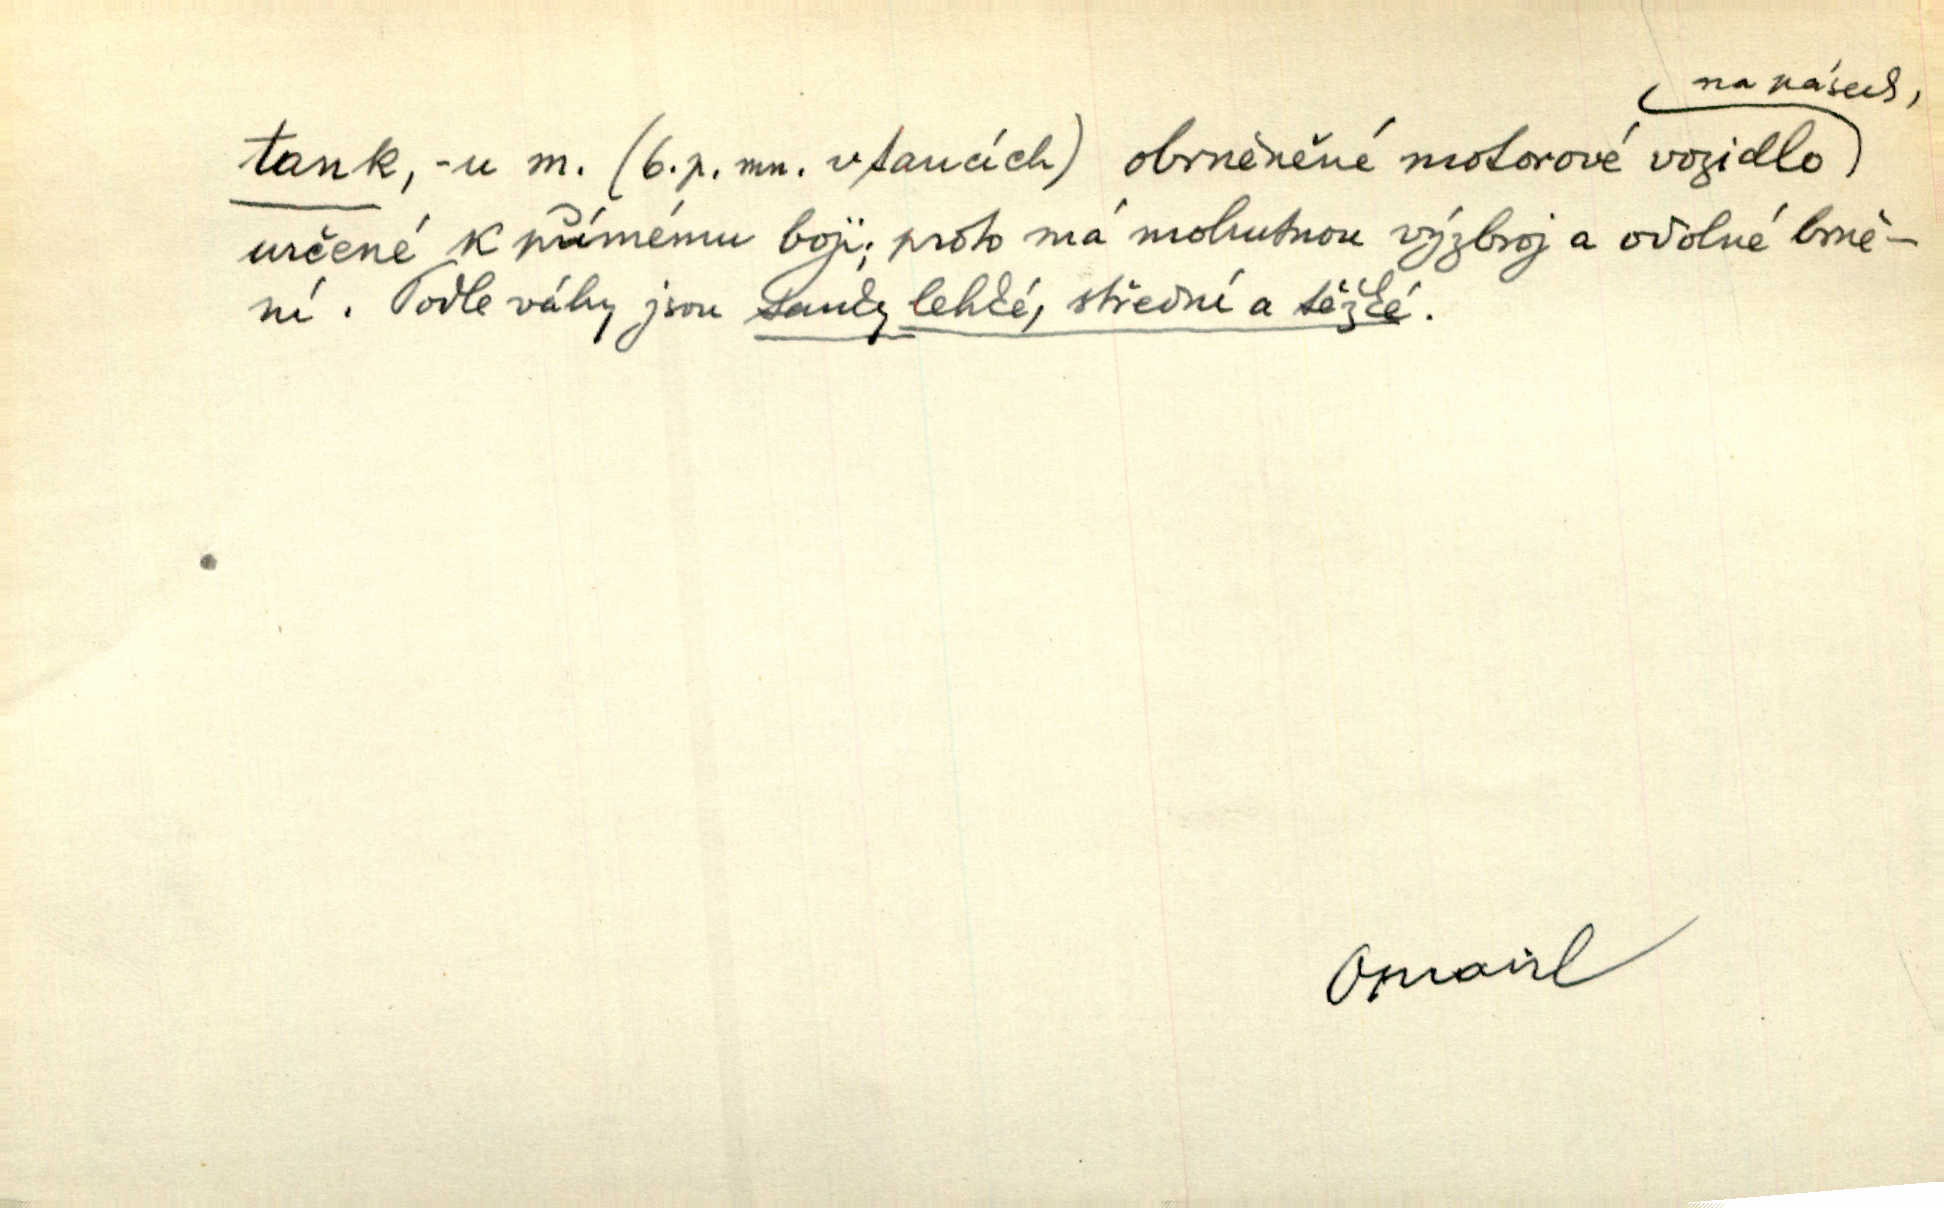 na pásech,
tank, -u m. (6. p. mn. v tancích) obrněněné motorové vozidlo
určené k přímému boji; proto má mohutnou výzbroj a odolné brně-
ní. Podle váhy jsou tanky lehké, střední a těžké.